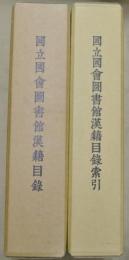 國立國會圖書館漢籍目錄
國立國會圖書館漢籍目錄索引